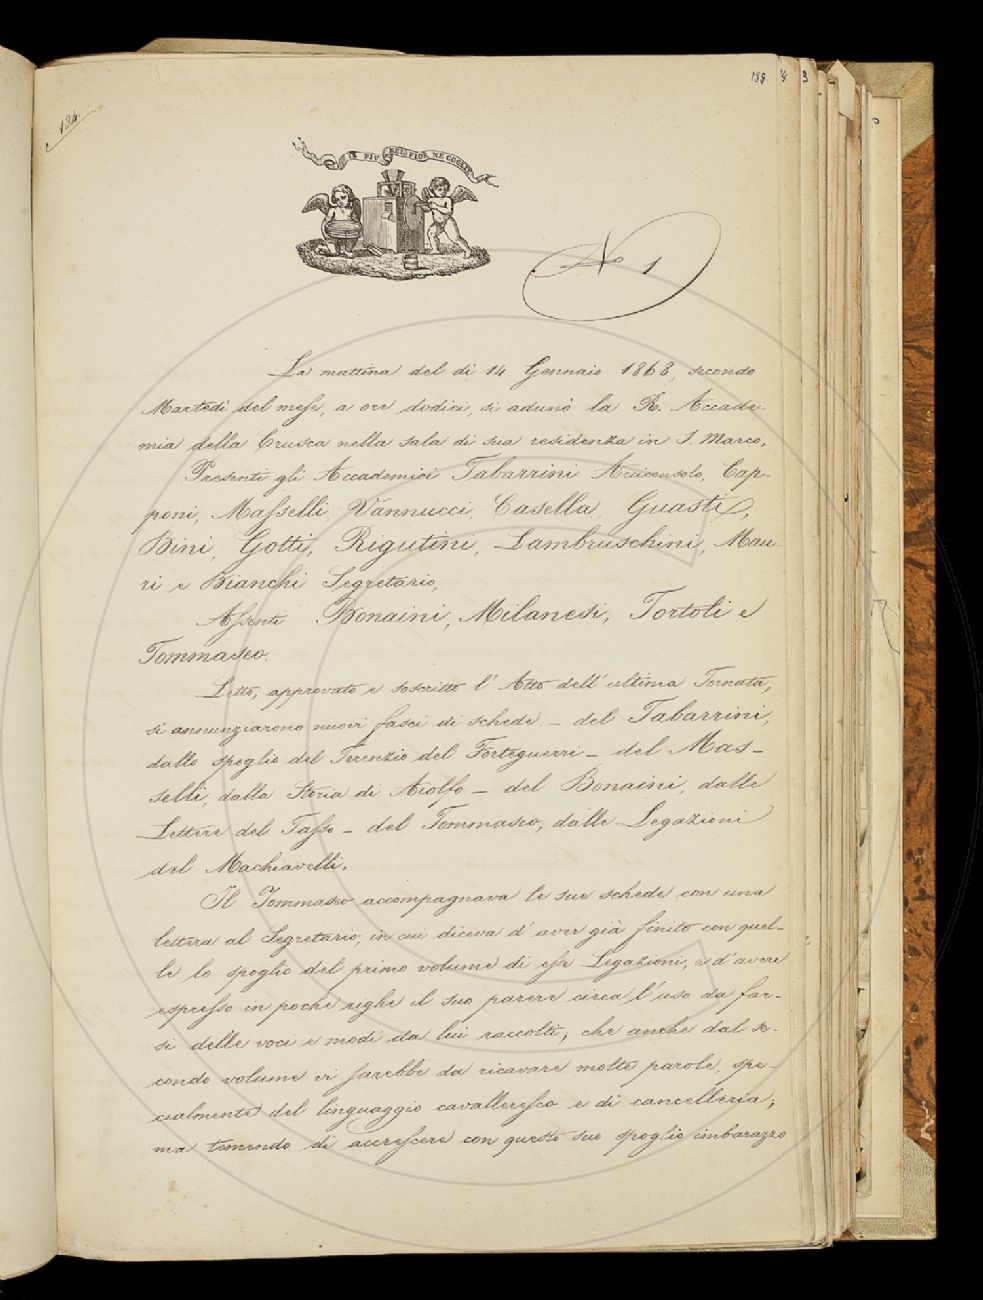 134
188
IL PIÙ BEL FIOR NE COGLIE
N 1
La mattina del dì 14 Gennaio 1868, secondo
Martedì del mese, a ore dodici, si adunò la R. Accade-
mia della Crusca nella sala di sua residenza in S. Marco.
Presenti gli Accademici Tabarrini Arciconsolo, Cap-
poni, Masselli, Vannucci, Casella, Guasti,
Bini, Gotti, Rigutini, Lambruschini, Mau-
ri e Bianchi Segretario,
Assenti Bonaini, Milanesi, Tortoli e
Tommaseo.
Letto, approvato e soscritto l'Atto dell'ultima Tornata,
si annunziarono nuovi fasci di schede – del Tabarrini,
dallo spoglio del Terenzio del Forteguerri – del Mas-
selli, dalla Storia di Aiolfo – del Bonaini, dalle
Lettere del Tasso – del Tommaseo, dalle Legazioni
del Machiavelli.
Il Tommaseo accompagnava le sue schede con una
lettera al Segretario, in cui diceva d'aver già finito con quel-
le lo spoglio del primo volume di esse Legazioni, e d'avere
espresso in poche righe il suo parere circa l'uso da far-
si delle voci e modi da lui raccolti; che anche dal se-
condo volume vi sarebbe da ricavare molte parole, spe-
cialmente del linguaggio cavalleresco e di cancelleria;
ma temendo di accrescere con questo suo spoglio imbarazzo